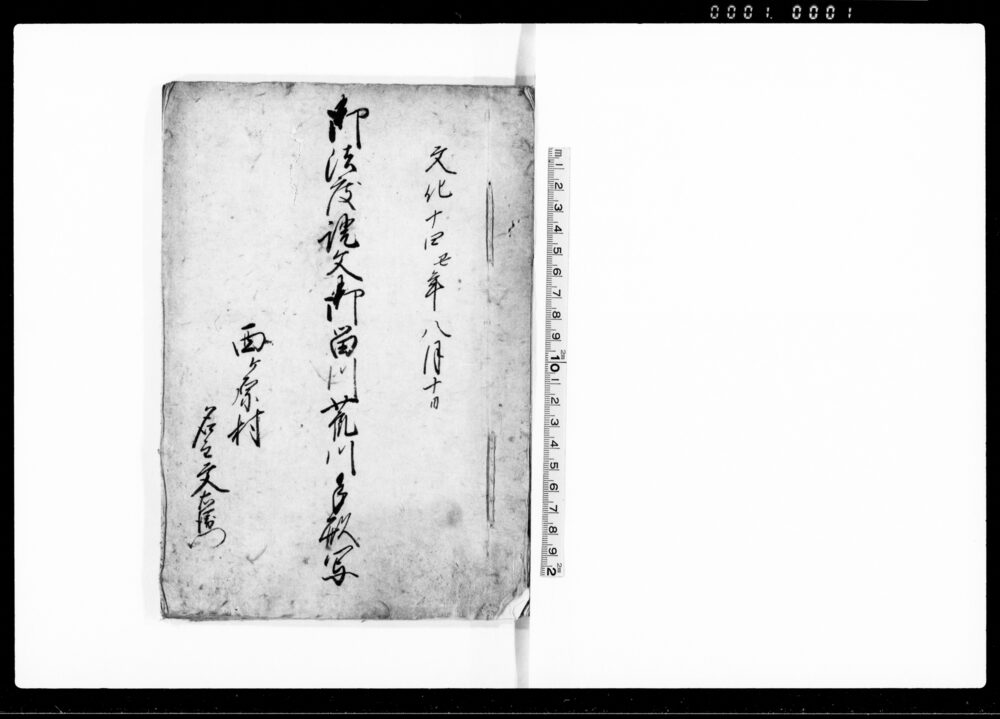 0001. 0001
文化十四丑年八月十日
御法度證文御留川荒川手形写
西ヶ原村
名主文右衛門
m 1 2 3 4 5 6 7 8 9 10 1 2 3 4 5 6 7 8 9 2